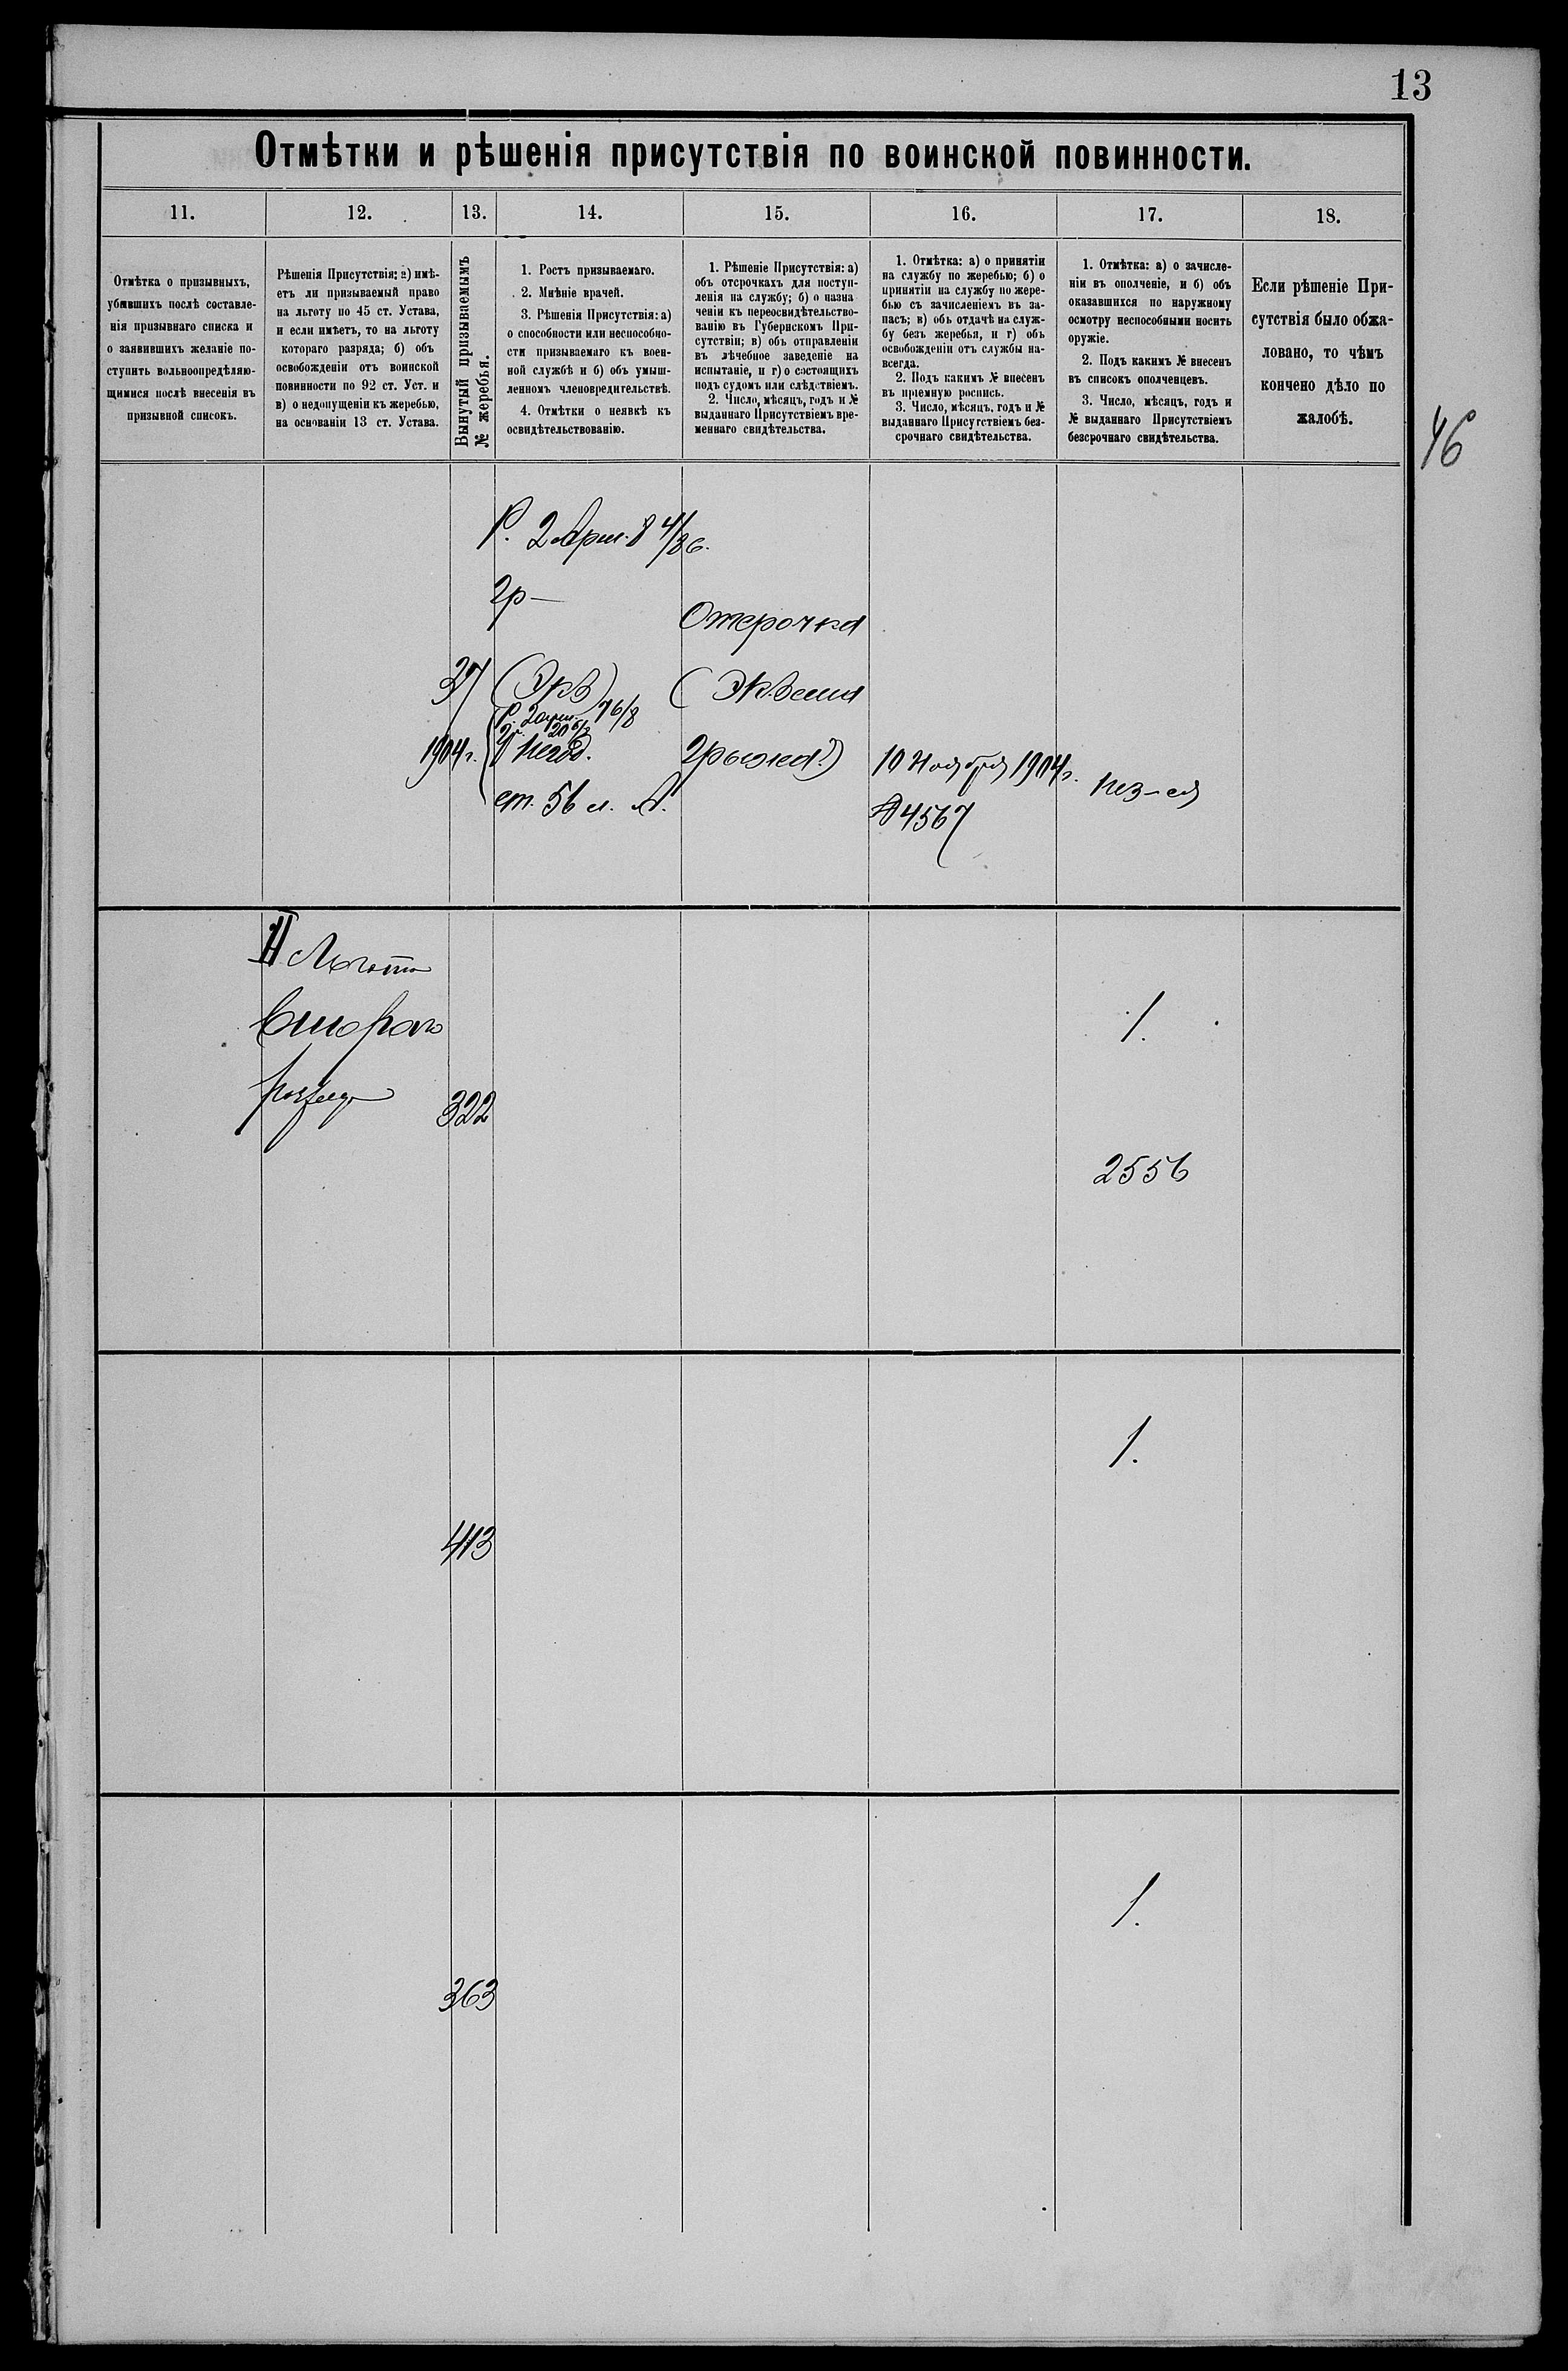 13
Отмѣтки и рѣшенія присутствія по воинской повинности.
11.
12.
13.
14.
15.
16.
17.
18.
Отмѣтка о призывныхъ,
убывшихъ послѣ составле-
нія призывнаго списка и
о заявившихъ желаніе по-
ступить вольноопредѣляю-
щимися послѣ внесенія въ
призывной списокъ.
Рѣшенія Присутствія: а) имѣ-
етъ ли призываемый право
на льготу по 45 ст. Устава,
и если имѣетъ, то на льготу
котораго разряда; б) объ
освобожденіи отъ воинской
повинности по 92 ст. Уст. и
в) о недопущеніи къ жеребью,
на основаніи 13 ст. Устава.
Вынутый призываемымъ
№ жеребья.
1. Ростъ призываемаго.
2. Мнѣніе врачей.
3. Рѣшенія Присутствія: а)
о способности или неспособно-
сти призываемаго къ воен-
ной службѣ и б) объ умыш-
ленномъ членовредительствѣ.
4. Отмѣтки о неявкѣ къ
освидѣтельствованію.
1. Рѣшеніе Присутствія: а)
объ отсрочкахъ для поступ-
ленія на службу; б) о назна
ченіи къ переосвидѣтельство-
ванію въ Губернскомъ При-
сутствіи; в) объ отправленіи
въ лѣчебное заведеніе на
испытаніе, и г) о состоящихъ
подъ судомъ или слѣдствіемъ.
2. Число, мѣсяцъ, годъ и №
выданнаго Присутствіемъ вре-
меннаго свидѣтельства.
1. Отмѣтка: а) о принятіи
на службу по жеребью; б) о
принятіи на службу по жере-
бью съ зачисленіемъ въ за-
пасъ; в) объ отдачѣ на служ-
бу безъ жеребья, и г) объ
освобожденіи отъ службы на-
всегда.
2. Подъ какимъ № внесенъ
въ пріемную роспись.
3. Число, мѣсяцъ, годъ и №
выданнаго Присутствіемъ без-
срочнаго свидѣтельства.
1. Отмѣтка: а) о зачисле-
ніи въ ополченіе, и б) объ
оказавшихся по наружному
осмотру неспособными носить
оружіе.
2. Подъ какимъ № внесенъ
въ списокъ ополченцевъ.
3. Число, мѣсяцъ, годъ и
№ выданнаго Присутствіемъ
безсрочнаго свидѣтельства.
Если рѣшеніе При-
сутствія было обжа-
ловано, то чѣмъ
кончено дѣло по
жалобѣ.
46
Р. 2 арш. 8 4/8 в.
гр—
Отсрочка
37
Р. 2 арш. 7 6/8
1904 г.
негод.
ст. 56 л. А.
грыжа?)
10 Ноября 1904 г.
№ 4567
II Льгота
Второго
разряда
322
1.
2556
413
1.
363
1.